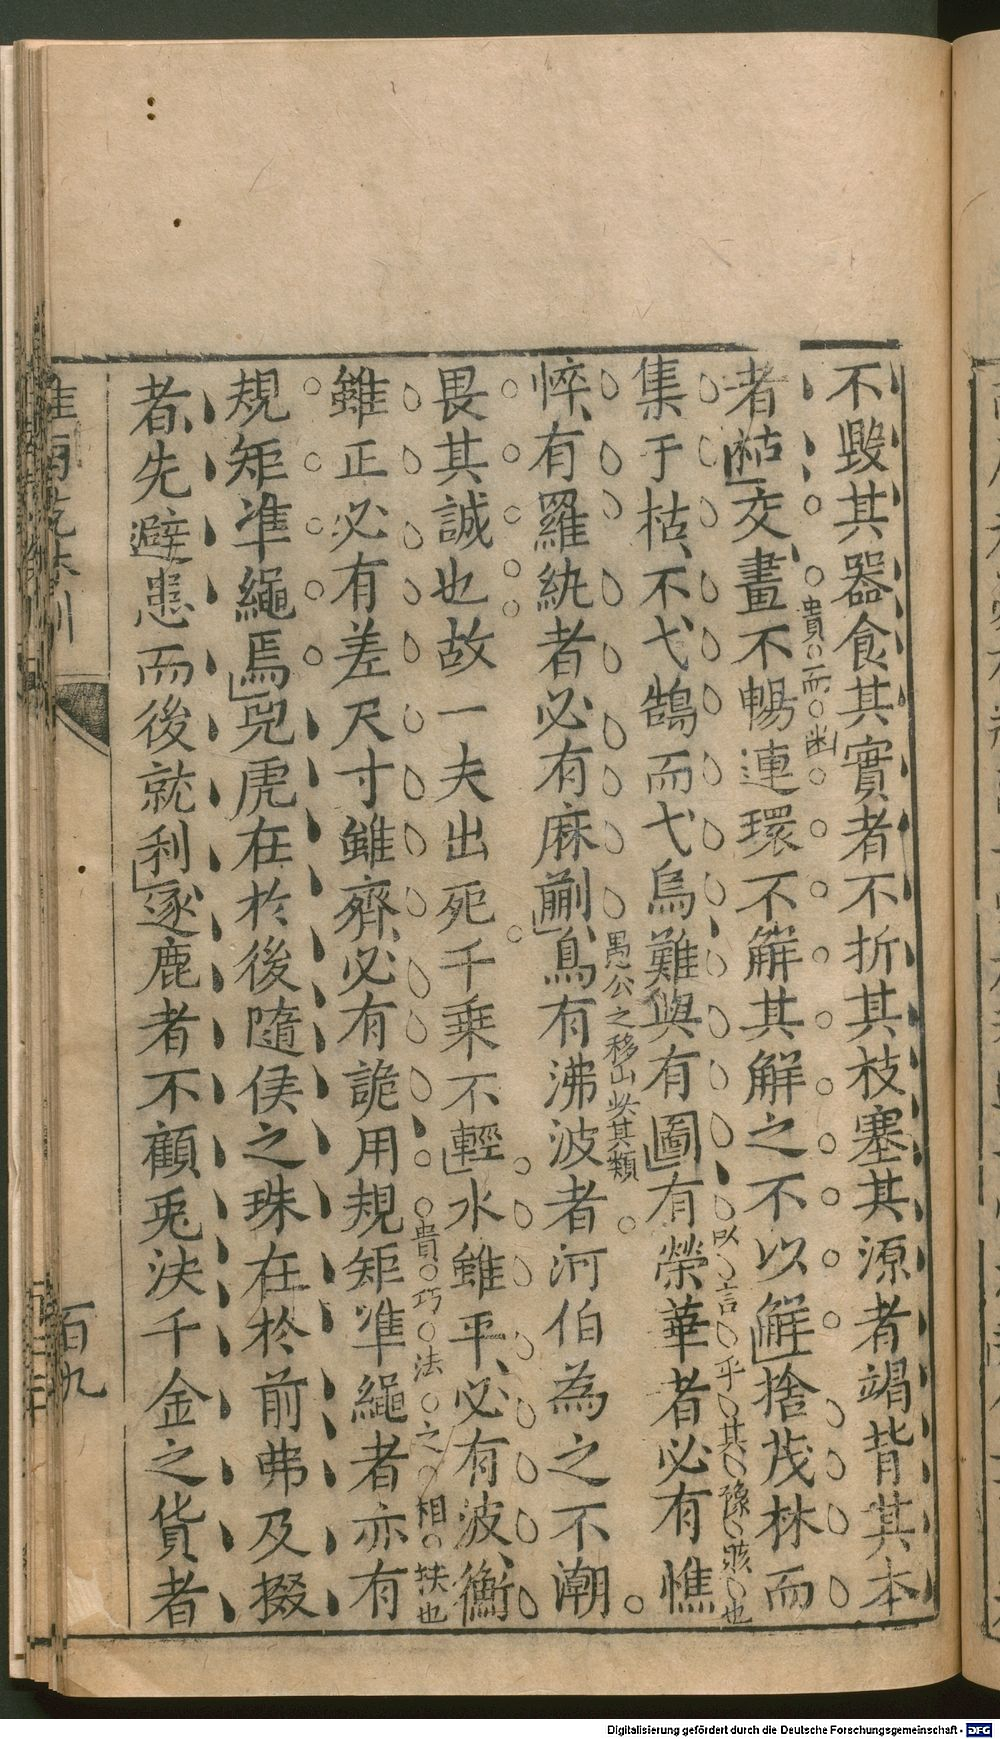 不毀其器食其實者不折其枝塞其源者竭背其本
者枯交畫不暢連環不解其解之不以解捨茂林而
貴而幽
集于枯不弋鵠而弋烏難與有圖有榮華者必有憔
以言乎其豫 也
悴有羅紈者必有麻蒯鳥有沸波者河伯為之不潮
愚公之移山此其類
畏其誠也故一夫出死千乗不輕水雖平必有波衡
雖正必有差尺寸雖齊必有詭用規矩準繩者亦有
貴巧法之相扶也
規矩準繩焉兕虎在於後隨侯之珠在於前弗及掇
者先避患而後就利逐鹿者不顧兎決千金之貨者
百九
Digitalisierung gefördert durch die Deutsche Forschungsgemeinschaft - DFG